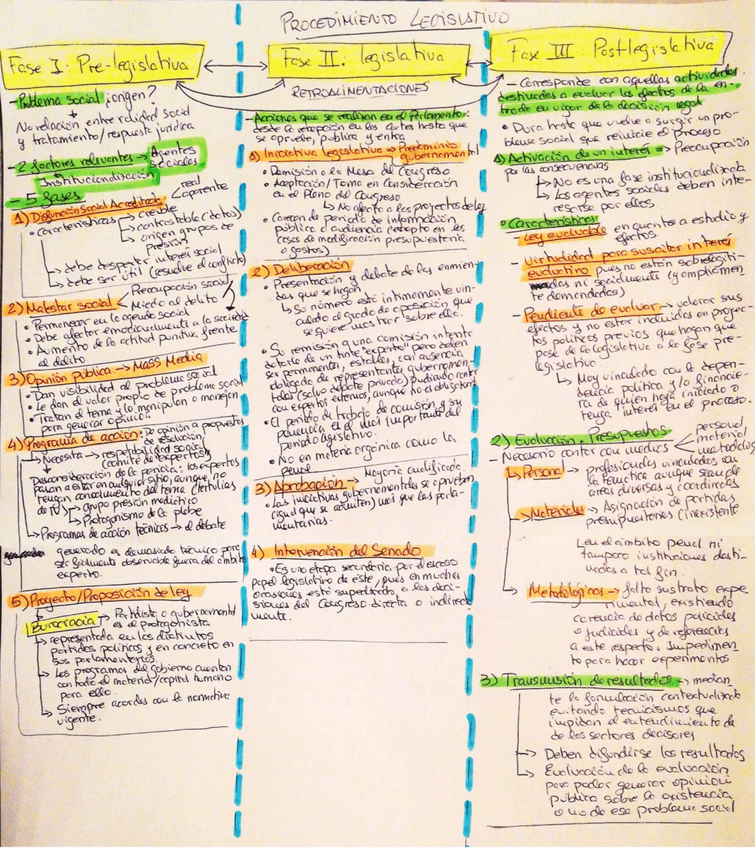 PROCEDIMIENTO LEGISLATIVO
Fase I: Pre-legislativa
Fase II: legislativa
Fase III: Postlegislativa
RETROALIMENTACIONES
- Problema social ¿origen?
No relación entre realidad social
y tratamiento/respuesta jurídica
- 2 factores relevantes → Agentes
sociales
Institucionalización
- 5 fases
real
aparente
1) Disfunción Social Acreditada
• Características
creíble
contrastable (datos)
origen grupos de
presión
debe despertar interés social
debe ser útil (resuelve el conflicto)
2) Malestar social
Preocupación social
Miedo al delito
• Permanecer en la agenda social
• Debe afectar emocionalmente a la sociedad
• Aumento de la actitud punitiva frente
al delito
3) Opinión pública → Mass Media
• Dan visibilidad al problema social
• Le dan el valor propio de problema social
• Tratan el tema y lo manipulan o manejan
para generar opinión
4) Programa de acción
De opinión a propuestas
de resolución
→ Necesita → respetabilidad social
(comité de expertos)
Desconsideración de la pericia: los expertos
pasan a estar en cualquier sitio, aunque no
tengan conocimiento del tema (tertulias
de TV)
→ grupo presión mediático
→ Protagonismo de la plebe
→ Programas de acción técnicos → el debate
generado es demasiado técnico para
ser fácilmente observable fuera del ámbito
experto.
5) Proyecto/Proposición de ley
Burocracia → Partidista o gubernamental
es el protagonista
→ representada en los distintos
partidos políticos y en concreto en
sus parlamentarios.
→ Los programas del Gobierno cuentan
con todo el material/capital humano
para ello.
→ Siempre acordes con la normativa
vigente.
- Acciones que se realizan en el Parlamento:
desde la recepción en las Cortes hasta que
se apruebe, publica y entra
1) Iniciativa legislativa → Predominio
gubernamental
• Remisión a la Mesa del Congreso
• Aceptación/Toma en Consideración
en el Pleno del Congreso
↳ No afecta a los proyectos de ley
• Carecen de periodo de información
pública o audiencia (excepto en los
casos de modificación presupuestaria
o gastos)
2) Deliberación
• Presentación y debate de las enmien-
das que se hagan
↳ Su número está íntimamente vin-
culado al grado de oposición que
se quiere mostrar sobre ella.
• Su remisión a una comisión intenta
dotarla de un tinte "experto" pero deben
ser permanentes, estables, con ausencia
obligada de representantes gubernamen-
tales (salvo debate privado) pudiendo contar
con expertos externos, aunque no es obligatorio
• El periodo de trabajo de comisión y su
ponencia es el más importante del
periodo legislativo.
• No en materia orgánica como la
penal
3) Aprobación → Mayoría cualificada
• Las iniciativas gubernamentales se aprueban
(igual que se admiten) más que las parla-
mentarias.
4) Intervención del Senado
• Es una etapa secundaria por el escaso
papel legislativo de este, pues en muchas
ocasiones está supeditado a las deci-
siones del Congreso directa o indirecta
mente.
- Corresponde con aquellas actividades
destinadas a evaluar los efectos de la en-
trada en vigor de la decisión legal
• Dura hasta que vuelve a surgir un pro-
blema social que reinicie el proceso
1) Activación de un interés → Preocupación
por las consecuencias
↳ No es una fase institucionalizada
↳ Los agentes sociales deben inte-
resarse por ellos.
• Características
- Ley evaluable en cuanto a estudio y
efectos
- Virtualidad para suscitar interés
evaluativo pues no están
ni socialmente (y amplicamen
te demandadas)
- Pendiente de evaluar → valorar sus
efectos y no estar incluidas en proyec-
tos políticos previos que hagan que
pase de la legislativa a la fase pre-
legislativa.
↳ Muy vinculado con la depen-
dencia política y/o financie-
ra de quien haya iniciado o
tenga interés en el proceso.
2) Evaluación. Presupuestos
- Necesario contar con medios
personal
material
metodológ
→ Personal → profesionales vinculados con
la temática aunque sean de
áreas diversas y coordinadas
→ Materiales → Asignación de partidas
presupuestarias (inexistente
en el ámbito penal ni
tampoco instituciones desti-
nadas a tal fin.
→ Metodológicos → falta sustrato expe
rimental, existiendo
carencia de datos policiales
o judiciales y de referencias
a este respecto. Impedimen
to para hacer experimentos
3) Transmisión de resultados → median
te la formulación contextualizada
evitando tecnicismos que
impidan el entendimiento de
de los sectores decisores
→ Deben difundirse los resultados
→ Evaluación de la evaluación
para poder generar opinión
pública sobre la existencia
o no de ese problema social